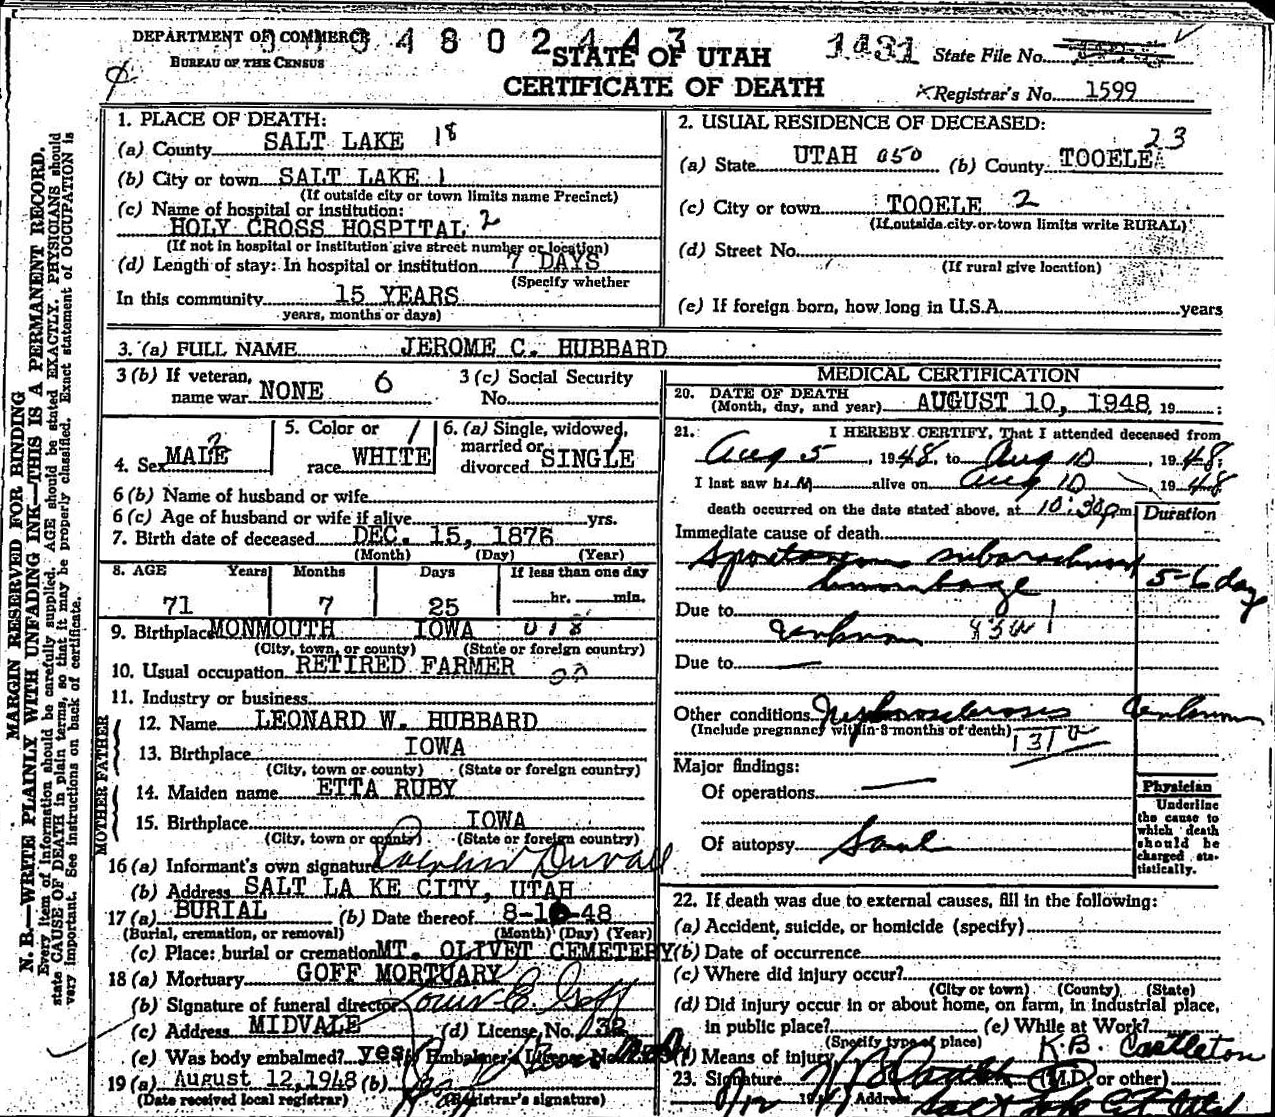 DEPARTMENT OF COMMERCE
BUREAU OF THE CENSUS
4 8 0 2 4 4 3
STATE OF UTAH
CERTIFICATE OF DEATH
1431 State File No.
Registrar's No. 1599
MARGIN RESERVED FOR BINDING
N. B.—WRITE PLAINLY WITH UNFADING INK—THIS IS A PERMANENT RECORD.
Every item of information should be carefully supplied. AGE should be stated EXACTLY. PHYSICIANS should
state CAUSE OF DEATH in plain terms, so that it may be properly classified. Exact statement of OCCUPATION is
very important. See instructions on back of certificate.
1. PLACE OF DEATH:
(a) County SALT LAKE 18
(b) City or town SALT LAKE 1
(If outside city or town limits name Precinct)
(c) Name of hospital or institution:
HOLY CROSS HOSPITAL 2
(If not in hospital or institution give street number or location)
(d) Length of stay: In hospital or institution 7 DAYS
(Specify whether
In this community 15 YEARS
years, months or days)
2. USUAL RESIDENCE OF DECEASED:
23
(a) State UTAH 050 (b) County TOOELE
(c) City or town TOOELE 2
(If outside city or town limits write RURAL)
(d) Street No.
(If rural give location)
(e) If foreign born, how long in U.S.A. years
3. (a) FULL NAME JEROME C. HUBBARD
3 (b) If veteran, name war NONE 6
3 (c) Social Security No.
4. Sex MALE 2
5. Color or race WHITE 1
6. (a) Single, widowed, married or divorced SINGLE 1
6 (b) Name of husband or wife
6 (c) Age of husband or wife if alive yrs.
7. Birth date of deceased DEC. 15, 1876
(Month) (Day) (Year)
8. AGE Years Months Days If less than one day
71 7 25 hr. min.
9. Birthplace MONMOUTH IOWA 018
(City, town, or county) (State or foreign country)
10. Usual occupation RETIRED FARMER
11. Industry or business
FATHER
12. Name LEONARD W. HUBBARD
13. Birthplace IOWA
(City, town or county) (State or foreign country)
MOTHER
14. Maiden name ETTA RUBY
15. Birthplace IOWA
(City, town or county) (State or foreign country)
16 (a) Informant's own signature Duvall
(b) Address SALT LA KE CITY, UTAH
17 (a) BURIAL (b) Date thereof 8-1 -48
(Burial, cremation, or removal) (Month) (Day) (Year)
(c) Place: burial or cremation MT. OLIVET CEMETERY
18 (a) Mortuary GOFF MORTUARY
(b) Signature of funeral director Louis E. Goff
(c) Address MIDVALE (d) License No. 32
(e) Was body embalmed? yes Embalmer's License No.
19 (a) August 12, 1948 (b)
(Date received local registrar) (Registrar's signature)
MEDICAL CERTIFICATION
20. DATE OF DEATH
(Month, day, and year) AUGUST 10, 1948 19 ;
21. I HEREBY CERTIFY, That I attended deceased from
Aug 5, 1948, to Aug 10, 1948;
I last saw h m alive on Aug 10, 1948
death occurred on the date stated above, at 10:30 p m
Duration
Immediate cause of death
Spontaneous subarachnoid
hemorrhage 5-6 day
Due to
unknown
Due to —
Other conditions Nephrosclerosis unknown
(Include pregnancy within 3 months of death) 131a
Major findings:
Of operations —
Of autopsy Same
Physician
Underline
the cause to
which death
should be
charged sta-
tistically.
22. If death was due to external causes, fill in the following:
(a) Accident, suicide, or homicide (specify)
(b) Date of occurrence
(c) Where did injury occur?
(City or town) (County) (State)
(d) Did injury occur in or about home, on farm, in industrial place,
in public place? (e) While at Work?
(Specify type of place)
(f) Means of injury K.B. Castleton
23. Signature (M.D. or other)
Address Salt Lake City